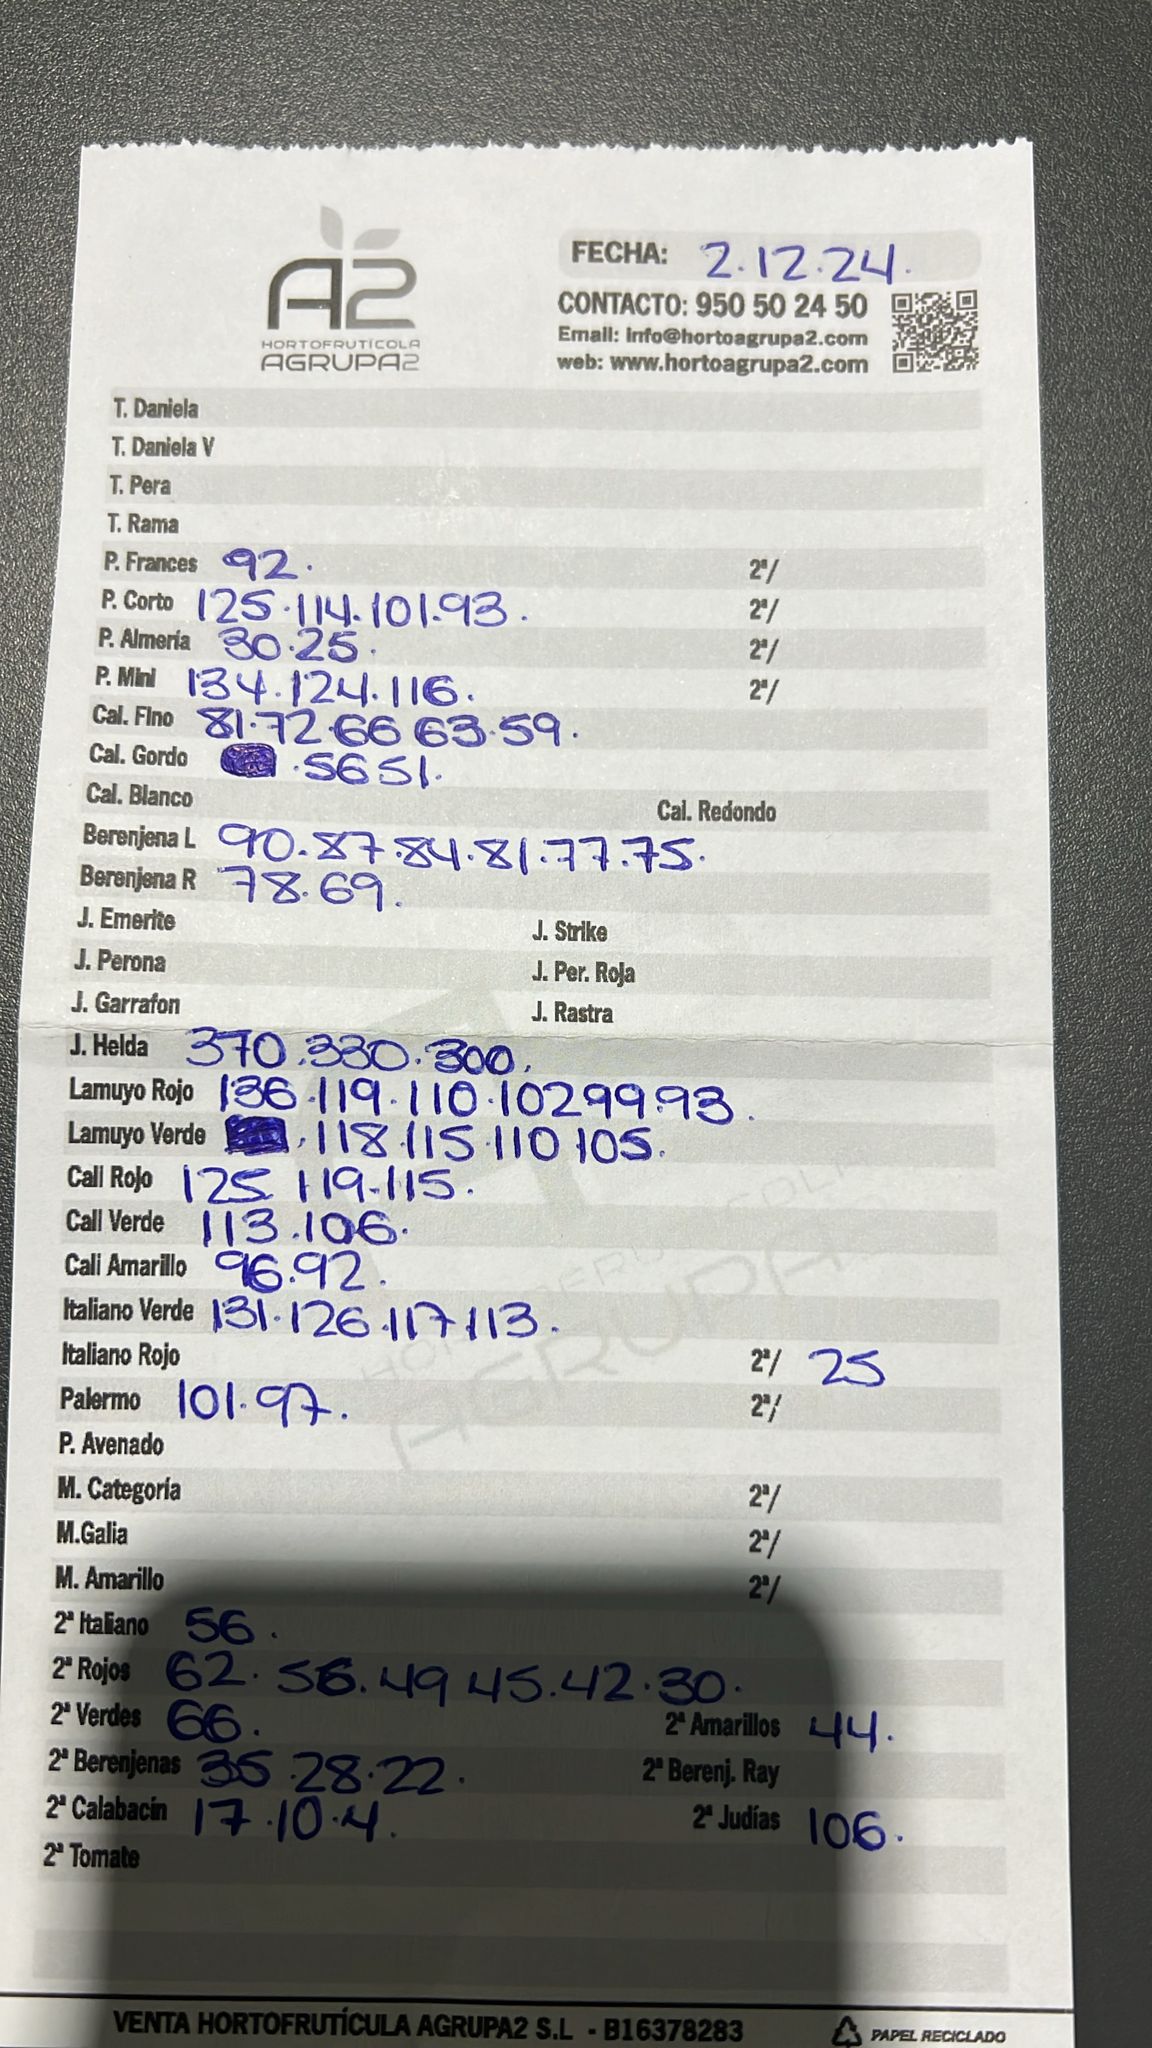 FECHA: 2.12.24.
A2
HORTOFRUTÍCOLA
AGRUPA2
CONTACTO: 950 50 24 50
Email: info@hortoagrupa2.com
web: www.hortoagrupa2.com
T. Daniela
T. Daniela V
T. Pera
T. Rama
P. Frances 92. 2ª/
P. Corto 125.114.101.93. 2ª/
P. Almería 30.25. 2ª/
P. Mini 134.124.116. 2ª/
Cal. Fino 81.72.66 63.59.
Cal. Gordo .56 51.
Cal. Blanco Cal. Redondo
Berenjena L 90.87.84.81.77.75.
Berenjena R 78.69.
J. Emerite J. Strike
J. Perona J. Per. Roja
J. Garrafon J. Rastra
J. Helda 370.330.300.
Lamuyo Rojo 136.119.110.102 99.93.
Lamuyo Verde .118.115.110 105.
Cali Rojo 125 119.115.
Cali Verde 113.106.
Cali Amarillo 96.92.
Italiano Verde 131.126.117.113.
Italiano Rojo 2ª/ 25
Palermo 101.97. 2ª/
P. Avenado
M. Categoría 2ª/
M.Galia 2ª/
M. Amarillo 2ª/
2ª Italiano 56.
2ª Rojos 62.56.49 45.42.30.
2ª Verdes 66. 2ª Amarillos 44.
2ª Berenjenas 35.28.22. 2ª Berenj. Ray
2ª Calabacín 17.10.4. 2ª Judías 106.
2ª Tomate
VENTA HORTOFRUTÍCULA AGRUPA2 S.L - B16378283
PAPEL RECICLADO